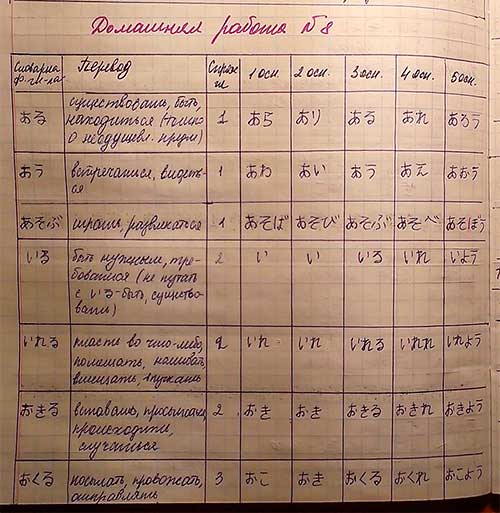 Домашняя работа №8
Словарная ф. гл-ла Перевод Спряж. гл 1 осн. 2 осн. 3 осн. 4 осн. 5 осн.
ある существовать, быть, находиться (только о неодушевл. предм) 1 あら あり ある あれ あろう
あう встречаться, видеться 1 あわ あい あう あえ あおう
あそぶ играть, развлекаться 1 あそば あそび あそぶ あそべ あそぼう
いる быть нужным, требоваться (не путать с いる-быть, существовать) 2 い い いる いれ いよう
いれる класть во что-либо, помещать, наливать, вмещать, впускать 2 いれ いれ いれる いれ いれよう
おきる вставать, просыпаться, происходить, случаться 2 おき おき おきる おきれ おきよう
おくる посылать, провожать, отправлять 3 おこ おき おくる おくれ おこよう